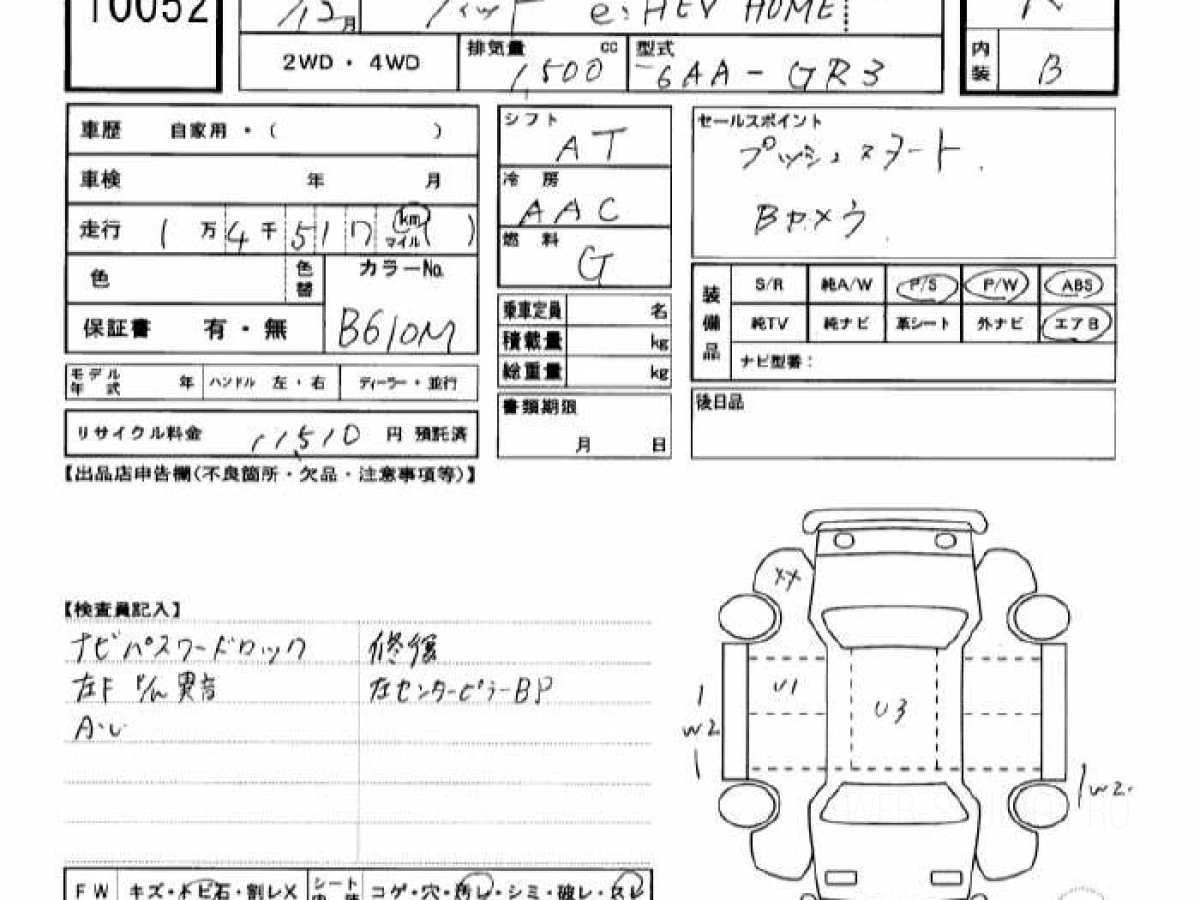 10052
/13月 フィット e:HEV HOME
2WD・4WD 排気量 1500 cc 型式 6AA-GR3
内装 B
車歴 自家用・( )
車検 年 月
走行 1万4千517 km マイル ( )
色 色替 カラーNo.
保証書 有・無 B610M
モデル年式 年 ハンドル 左・右 ディーラー・並行
リサイクル料金 11510 円 預託済
シフト AT
冷房 AAC
燃料 G
乗車定員 名
積載量 kg
総重量 kg
書類期限
月 日
セールスポイント
プッシュスタート
Bカメラ
装備品 S/R 純A/W P/S P/W ABS
純TV 純ナビ 革シート 外ナビ エアB
ナビ型番:
後日品
【出品店申告欄(不良箇所・欠品・注意事項等)】
【検査員記入】
ナビパスワードロック 修復
左F 異音 左センターピラーBP
A・U
XX
U1
U3
W2
W2
FW キズ・トビ石・割レX シート コゲ・穴・汚レ・シミ・破レ・スレ